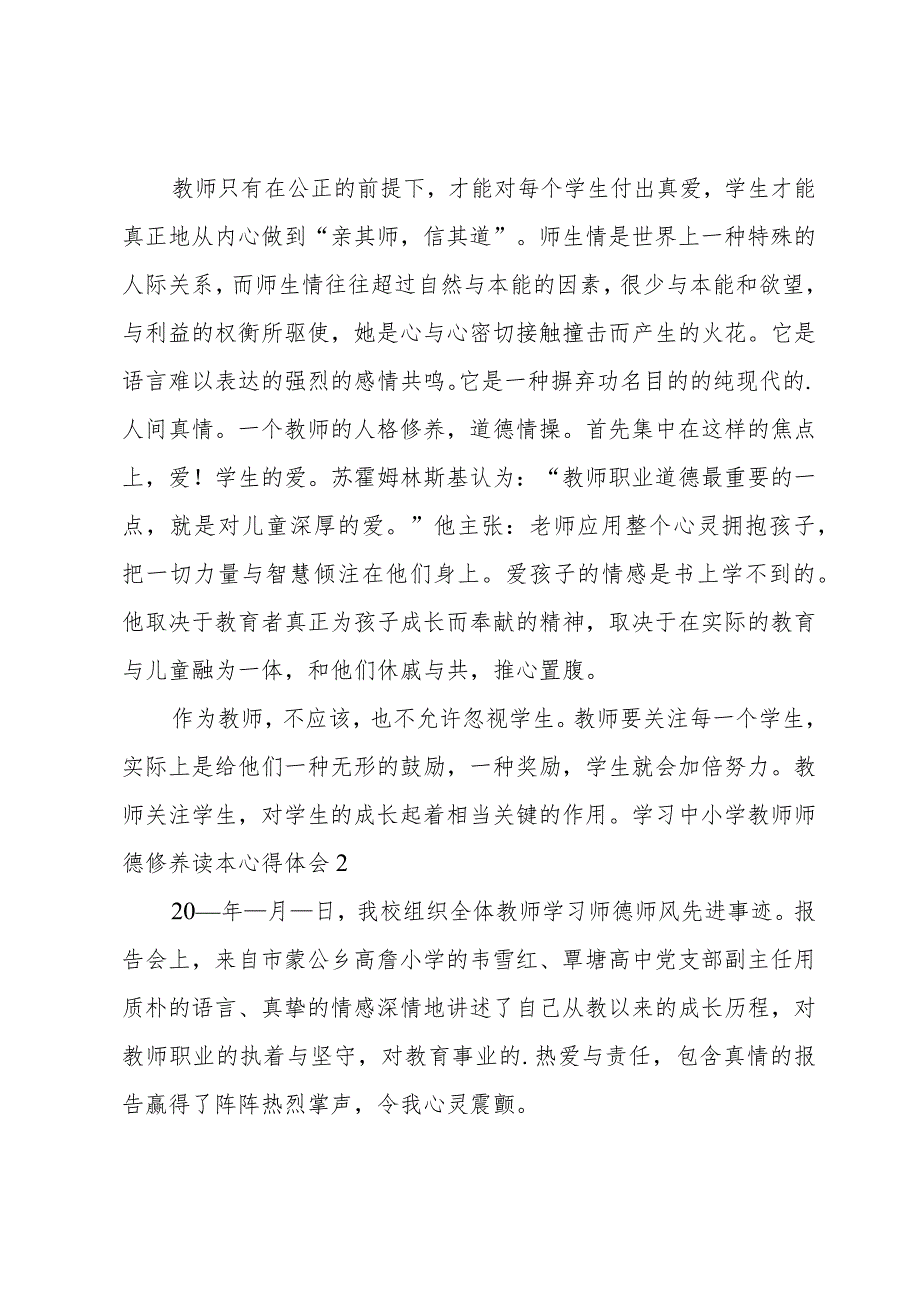 教师只有在公正的前提下，才能对每个学生付出真爱，学生才能
真正地从内心做到“亲其师，信其道”。师生情是世界上一种特殊的
人际关系，而师生情往往超过自然与本能的因素，很少与本能和欲望，
与利益的权衡所驱使，她是心与心密切接触撞击而产生的火花。它是
语言难以表达的强烈的感情共鸣。它是一种摒弃功名目的的纯现代的.
人间真情。一个教师的人格修养，道德情操。首先集中在这样的焦点
上，爱！学生的爱。苏霍姆林斯基认为：“教师职业道德最重要的一
点，就是对儿童深厚的爱。”他主张：老师应用整个心灵拥抱孩子，
把一切力量与智慧倾注在他们身上。爱孩子的情感是书上学不到的。
他取决于教育者真正为孩子成长而奉献的精神，取决于在实际的教育
与儿童融为一体，和他们休戚与共，推心置腹。
作为教师，不应该，也不允许忽视学生。教师要关注每一个学生，
实际上是给他们一种无形的鼓励，一种奖励，学生就会加倍努力。教
师关注学生，对学生的成长起着相当关键的作用。学习中小学教师师
德修养读本心得体会 2
20—年—月—日，我校组织全体教师学习师德师风先进事迹。报
告会上，来自市蒙公乡高詹小学的韦雪红、覃塘高中党支部副主任用
质朴的语言、真挚的情感深情地讲述了自己从教以来的成长历程，对
教师职业的执着与坚守，对教育事业的. 热爱与责任，包含真情的报
告赢得了阵阵热烈掌声，令我心灵震颤。